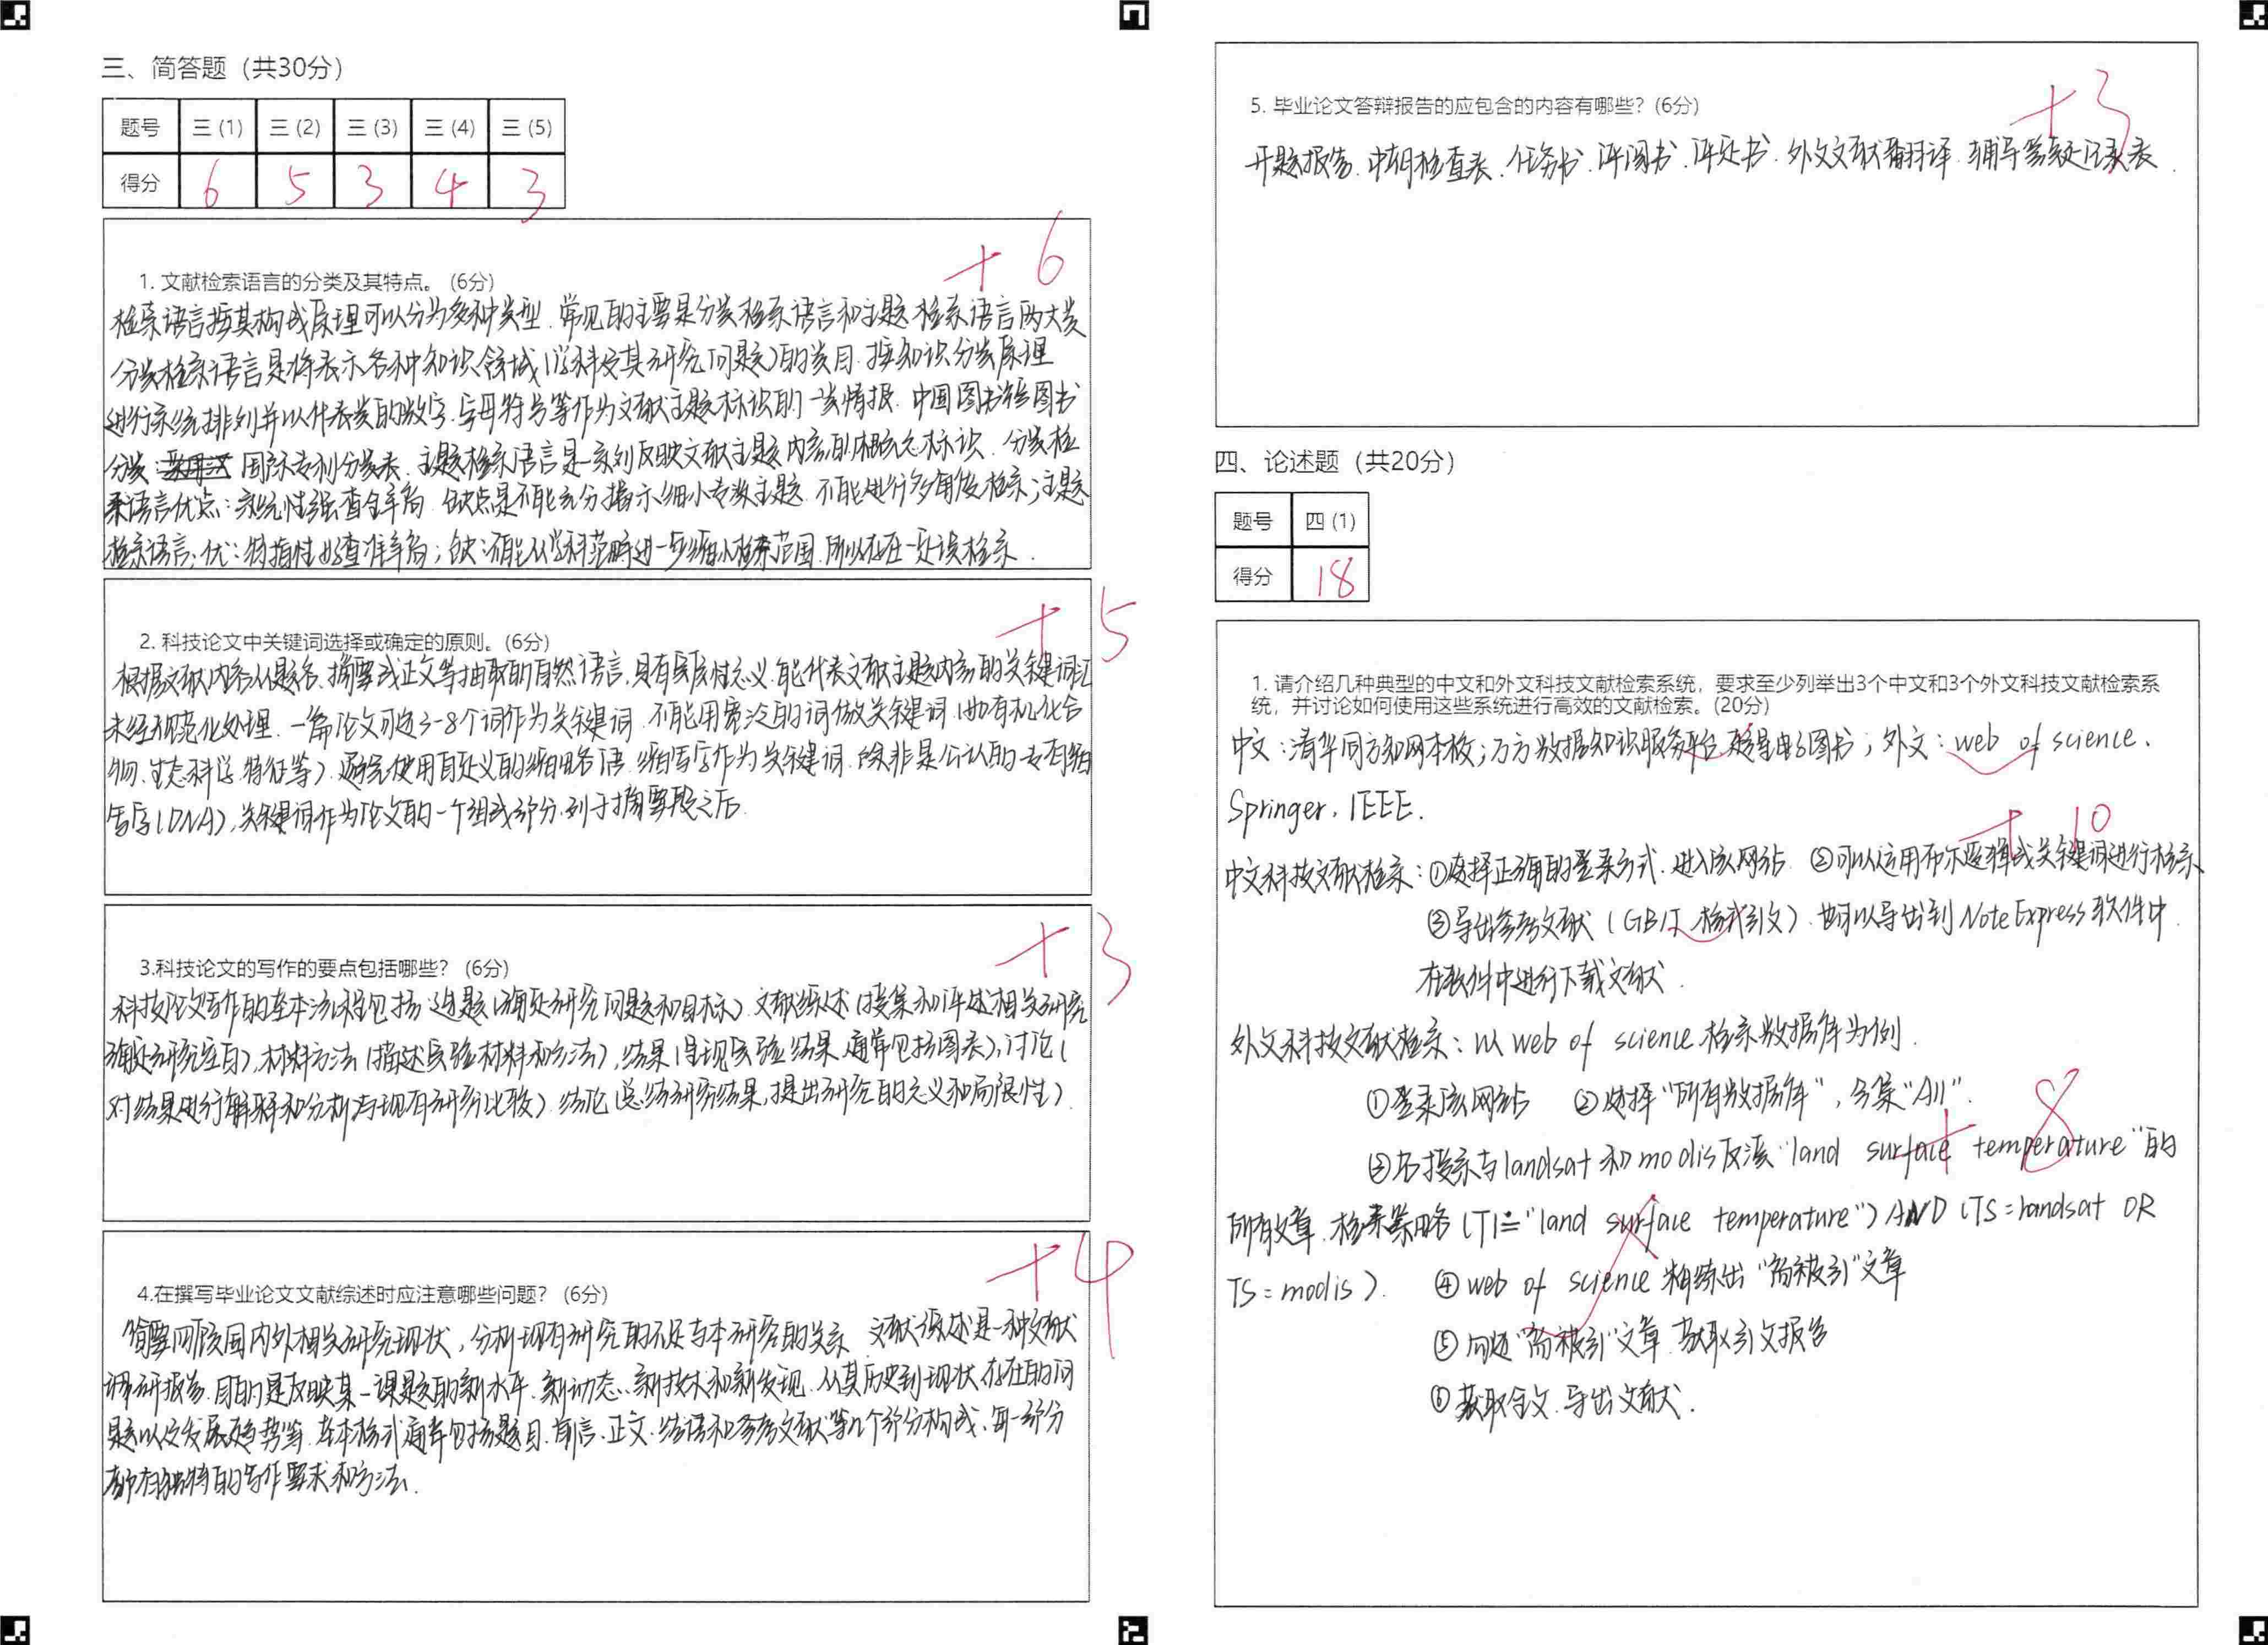 三、简答题（共30分）
题号 三 (1) 三 (2) 三 (3) 三 (4) 三 (5)
得分 6 5 3 4 3
+6
1. 文献检索语言的分类及其特点。 (6分)
检索语言按其构成原理可以分为多种类型. 常见的主要是分类检索语言和主题检索语言两大类
分类检索语言是将表示各种知识领域(学科及其研究问题)的类目. 按知识分类原理
进行系统排列并以代表类的数字.字母符号等作为文献主题标识的一类情报. 中国图书馆图书
分类. 国际专利分类表. 主题检索语言是一系列反映文献主题内容的概念标识. 分类检
索语言优点：系统性强查全率高. 缺点是不能充分揭示细小专深主题. 不能进行多角度检索；主题
检索语言：优：特指性好查准率高；缺：不能从学科范畴进一步缩小检索范围.所以存在一定误检索.
+5
2. 科技论文中关键词选择或确定的原则。(6分)
根据文献内容从题名、摘要或正文等抽取的自然语言,具有实质性意义.能代表文献主题内容的关键词汇
未经规范化处理. 一篇论文可选3-8个词作为关键词. 不能用宽泛的词做关键词（如有机化合
物、生态科学.特征等）.避免使用自定义的缩略语.缩写字作为关键词.除非是公认的专有缩
写字(DNA),关键词作为论文的一个组成部分.列于摘要段之后.
+3
3.科技论文的写作的要点包括哪些？ (6分)
科技论文写作的基本流程包括：选题(确定研究问题和目标). 文献综述(搜集和评述相关研究
确定研究空白),材料方法(描述实验材料和方法),结果(呈现实验结果.通常包括图表),讨论(
对结果进行解释和分析与现有研究比较). 结论(总结研究结果,提出研究的意义和局限性).
+4
4.在撰写毕业论文文献综述时应注意哪些问题？ (6分)
简要回顾国内外相关研究现状，分析现有研究的不足与本研究的关系. 文献综述是一种文献
调研报告.目的是反映某一课题的新水平、新动态、新技术和新发现.从其历史到现状.存在的问
题以及发展趋势等.基本格式通常包括题目.前言.正文.结语和参考文献等几个部分构成.每一部分
都有独特的写作要求和方法.
+3
5. 毕业论文答辩报告的应包含的内容有哪些？(6分)
开题报告.中期检查表.任务书.评阅书.评定书.外文文献翻译.辅导答疑记录表.
四、论述题（共20分）
题号 四 (1)
得分 18
1. 请介绍几种典型的中文和外文科技文献检索系统，要求至少列举出3个中文和3个外文科技文献检索系
统，并讨论如何使用这些系统进行高效的文献检索。(20分)
中文：清华同方知网本校；万方数据知识服务平台.超星电子图书；外文：web of science、
Springer, IEEE.
+10
中文科技文献检索：①选择正确的登录方式.进入该网站. ②可以运用布尔逻辑或关键词进行检索
③导出参考文献（GB/T 格式引文）.也可以导出到NoteExpress软件中.
在软件中进行下载文献.
外文科技文献检索：以 web of science 检索数据库为例.
①登录该网站 ②选择“所有数据库”，合集“All”.
+8
③搜索与landsat和modis反演“land surface temperature”的
所有文章.检索策略(TI="land surface temperature") AND (TS=landsat OR
TS=modis). ④web of science 精练出“高被引”文章
⑤勾选“高被引”文章.获取引文报告
⑥获取全文.导出文献.